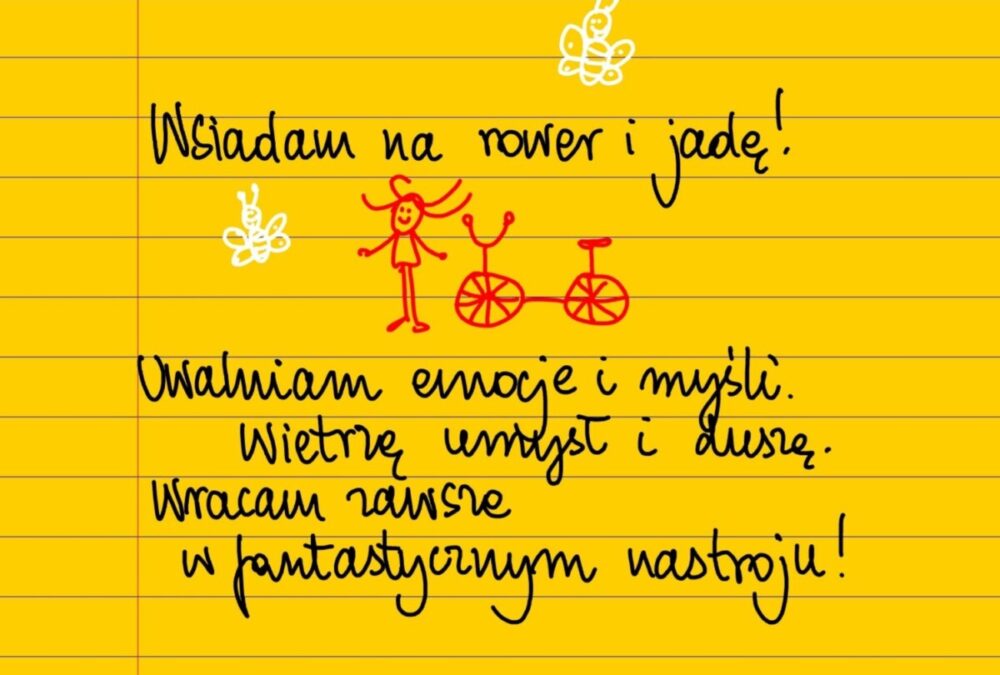 Wsiadam na rower i jadę!
Uwalniam emocje i myśli.
Wietrzę umysł i duszę.
Wracam zawsze
w fantastycznym nastroju!